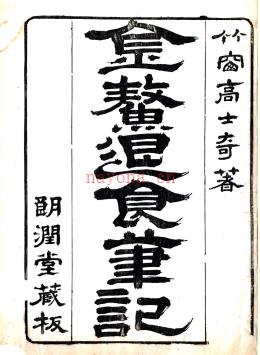 竹窗高士奇著
金鰲退食筆記
朗潤堂藏板
nayona.cn